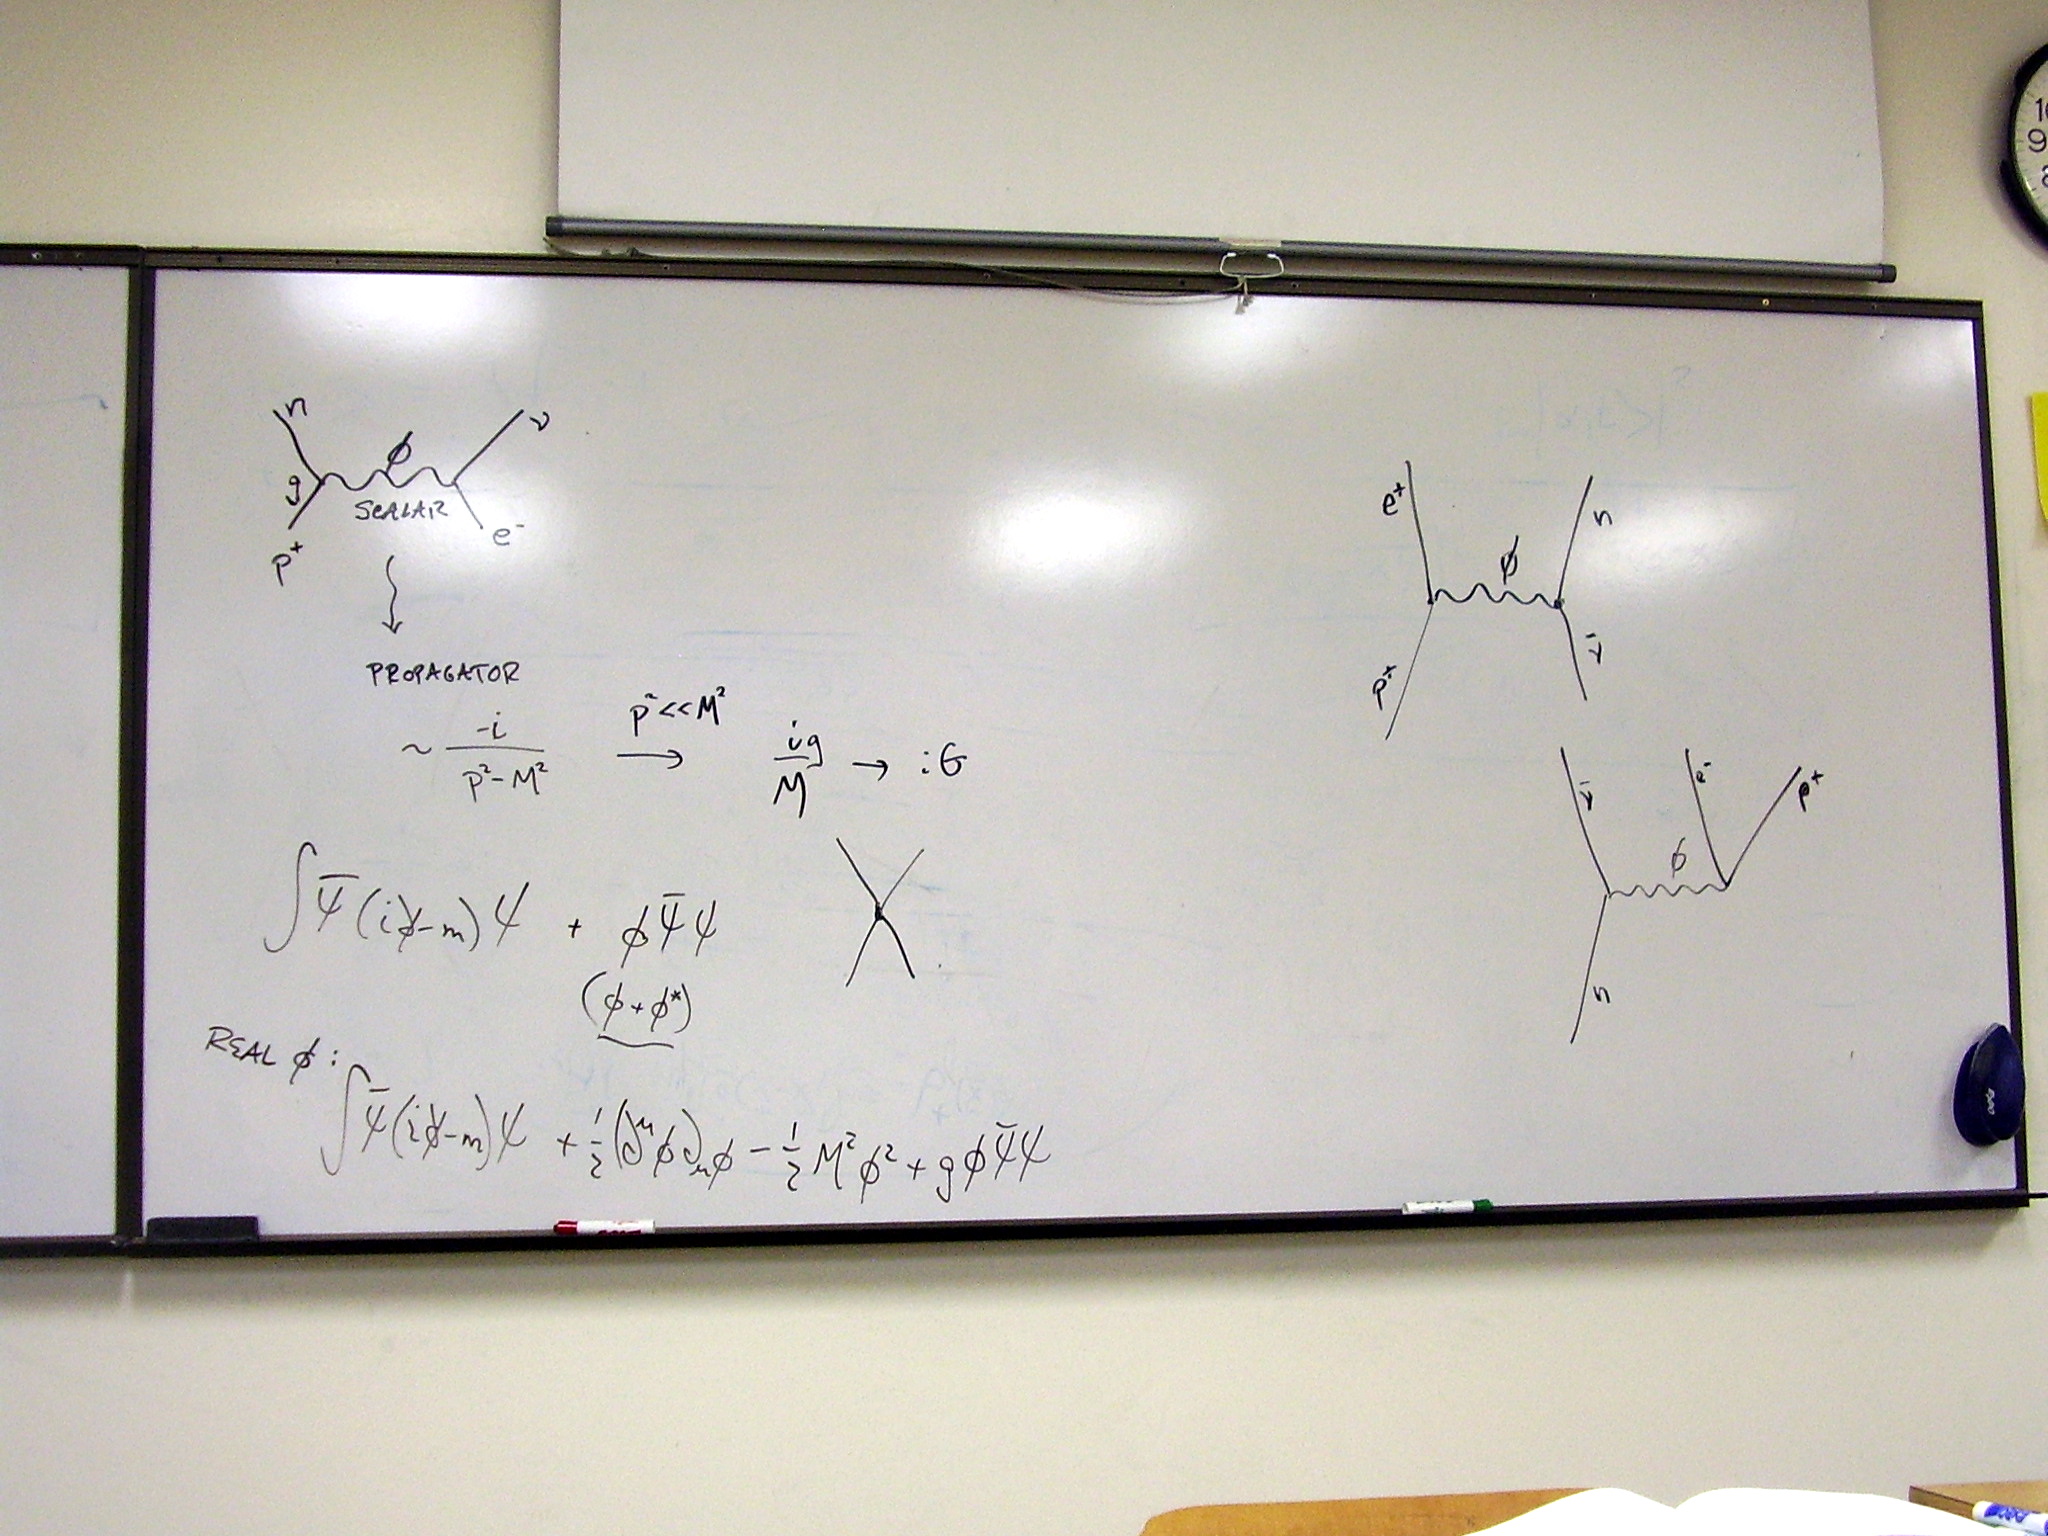 n
ν
g
ϕ
SCALAR
p⁺
e⁻
PROPAGATOR
~ -i / (p² - M²) → (p² << M²) ig / M → iG
∫ ψ̄ (i∂̸ - m) ψ + ϕ ψ̄ ψ
(ϕ + ϕ*)
REAL ϕ :
∫ ψ̄ (i∂̸ - m) ψ + ½ (∂^μ ϕ) ∂_μ ϕ - ½ M² ϕ² + g ϕ ψ̄ ψ
e⁺
n
ϕ
p⁺
ν̄
ν̄
e⁻
p⁺
ϕ
n
10
9
8